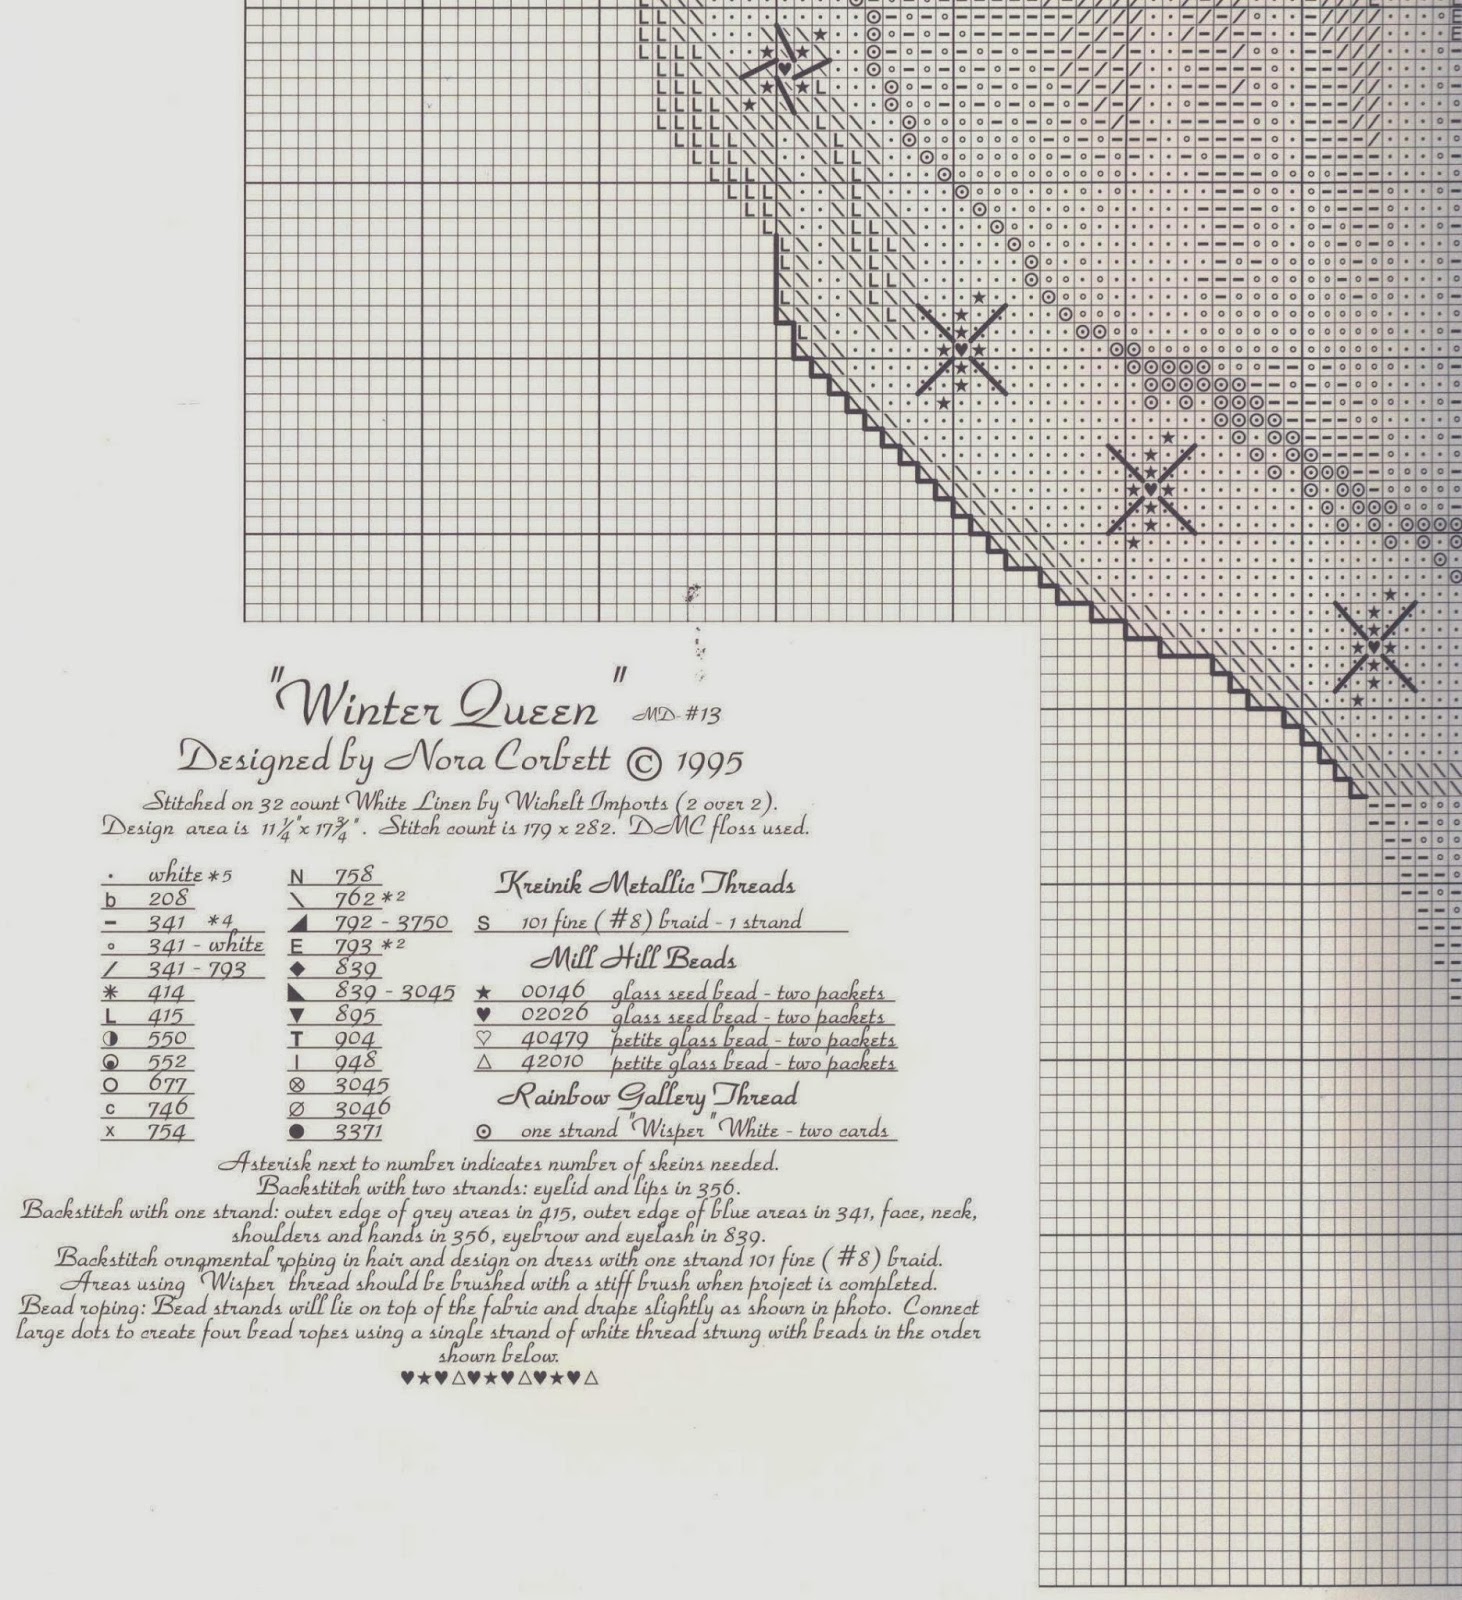 "Winter Queen" MD-#13
Designed by Nora Corbett © 1995
Stitched on 32 count White Linen by Wichelt Imports (2 over 2).
Design area is 11¼" x 17¾". Stitch count is 179 x 282. DMC floss used.
· white *5
b 208
– 341 *4
∘ 341 - white
/ 341 - 793
✳ 414
L 415
◑ 550
552
O 677
c 746
x 754
N 758
\ 762 *2
◢ 792 - 3750
E 793 *2
◆ 839
◣ 839 - 3045
▼ 895
T 904
I 948
⊗ 3045
∅ 3046
● 3371
Kreinik Metallic Threads
S 101 fine (#8) braid - 1 strand
Mill Hill Beads
★ 00146 glass seed bead - two packets
♥ 02026 glass seed bead - two packets
♡ 40479 petite glass bead - two packets
△ 42010 petite glass bead - two packets
Rainbow Gallery Thread
⊙ one strand "Wisper" White - two cards
Asterisk next to number indicates number of skeins needed.
Backstitch with two strands: eyelid and lips in 356.
Backstitch with one strand: outer edge of grey areas in 415, outer edge of blue areas in 341, face, neck,
shoulders and hands in 356, eyebrow and eyelash in 839.
Backstitch ornamental roping in hair and design on dress with one strand 101 fine (#8) braid.
Areas using "Wisper" thread should be brushed with a stiff brush when project is completed.
Bead roping: Bead strands will lie on top of the fabric and drape slightly as shown in photo. Connect
large dots to create four bead ropes using a single strand of white thread strung with beads in the order
shown below.
♥★♥△♥★♥△♥★♥△